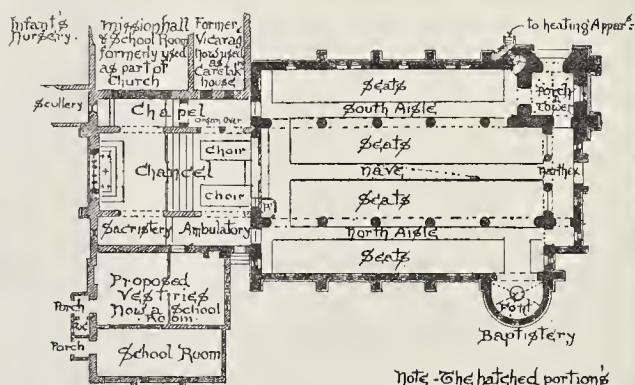 Infant's
Nursery.
Mission hall
& School Room
formerly used
as part of
Church
Former
Vicarage
now used
as
Caretak
house
to heating Appar's:
Scullery
Chapel
Organ Over
Seats
South Aisle
Porch
&
Tower
Choir
Chancel
Choir
Seats
Nave
Seats
Narthex
P
Sacristery
Ambulatory
North Aisle
Seats
Proposed
Vestries
Now a School
Room
Porch
Porch
School Room
Font
Baptistery
Note - The hatched portions